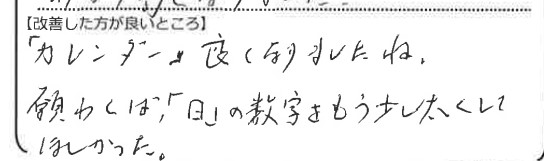 【改善した方が良いところ】
「カレンダー」良くなりましたね。
願わくば、「日」の数字をもう少し太くして
ほしかった。